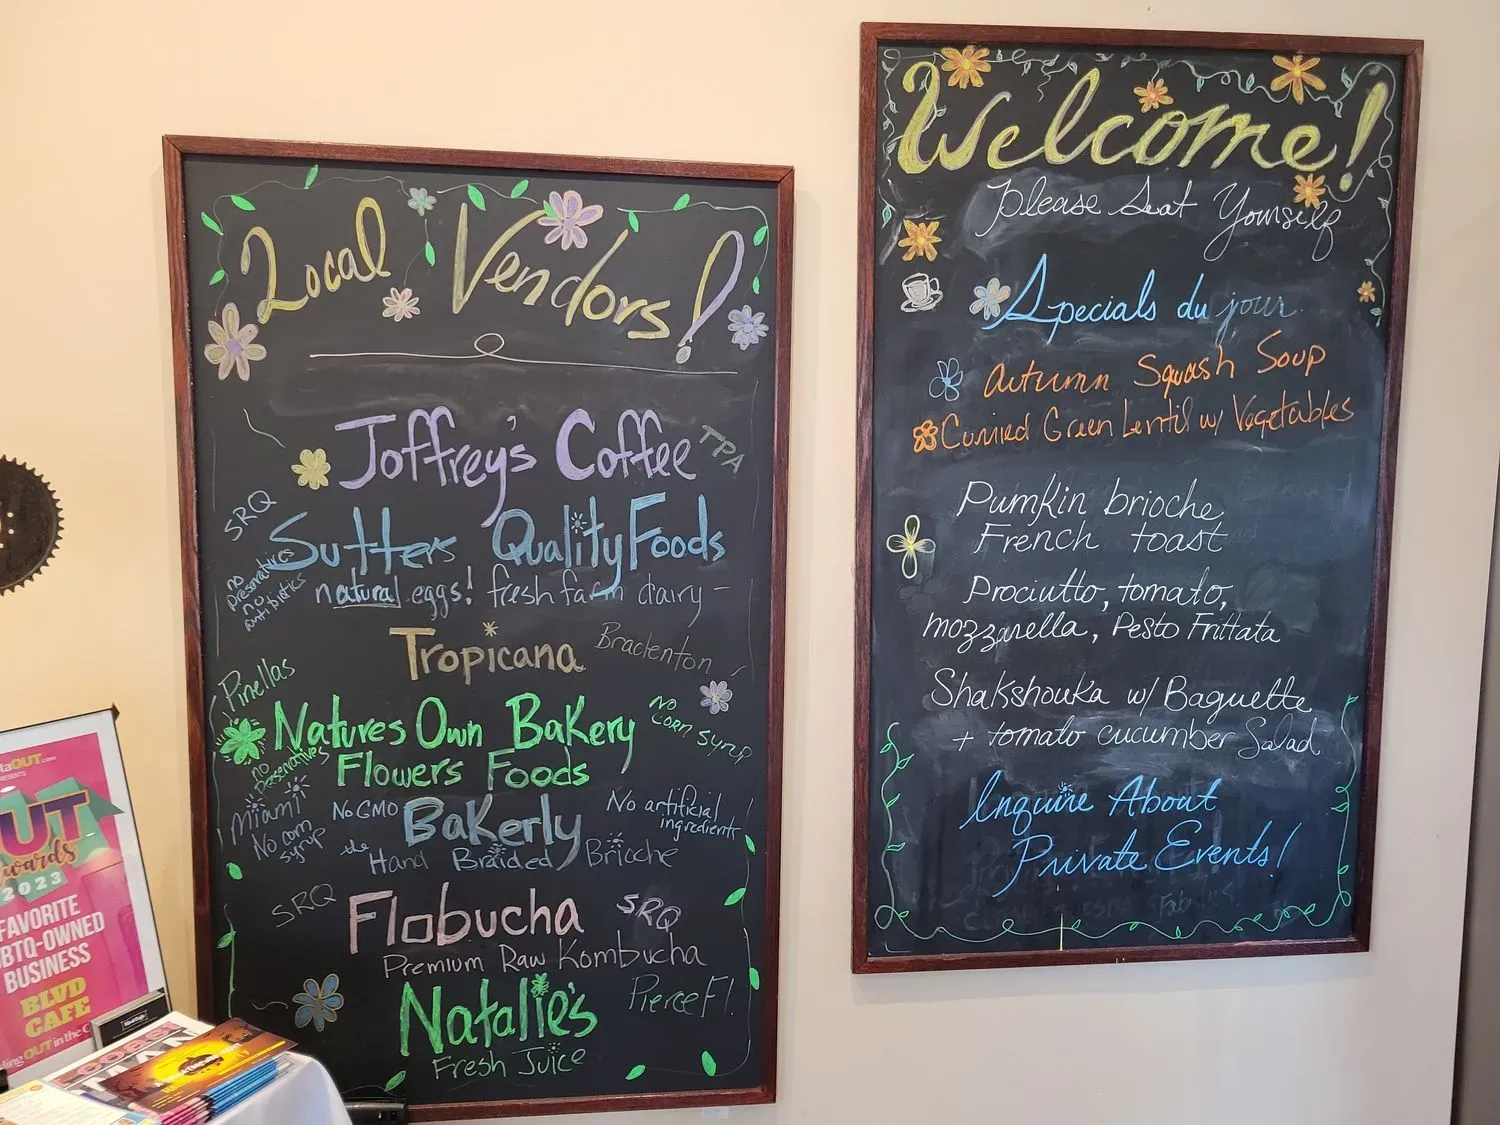 Local Vendors!
Joffrey's Coffee
TPA
SRQ
Sutters Quality Foods
no preservatives
no antibiotics
natural eggs! fresh farm dairy -
Tropicana
Bradenton
Pinellas
Natures Own Bakery
No Corn Syrup
no preservatives
Flowers Foods
Miami
No GMO
Bakerly
No artificial
ingredients
No corn
syrup
the Hand Braided Brioche
SRQ
Flobucha
SRQ
Premium Raw Kombucha
Natalie's
Pierce Fl.
Fresh Juice
Welcome!
Please Seat Yourself
Specials du jour
Autumn Squash Soup
Curried Green Lentil w/ Vegetables
Pumkin brioche
French toast
Prociutto, tomato,
mozzarella, Pesto Frittata
Shakshouka w/ Baguette
+ tomato cucumber Salad
Inquire About
Private Events!
OUT
awards
2023
FAVORITE
BTQ-OWNED
BUSINESS
BLVD
CAFE
OUT in the